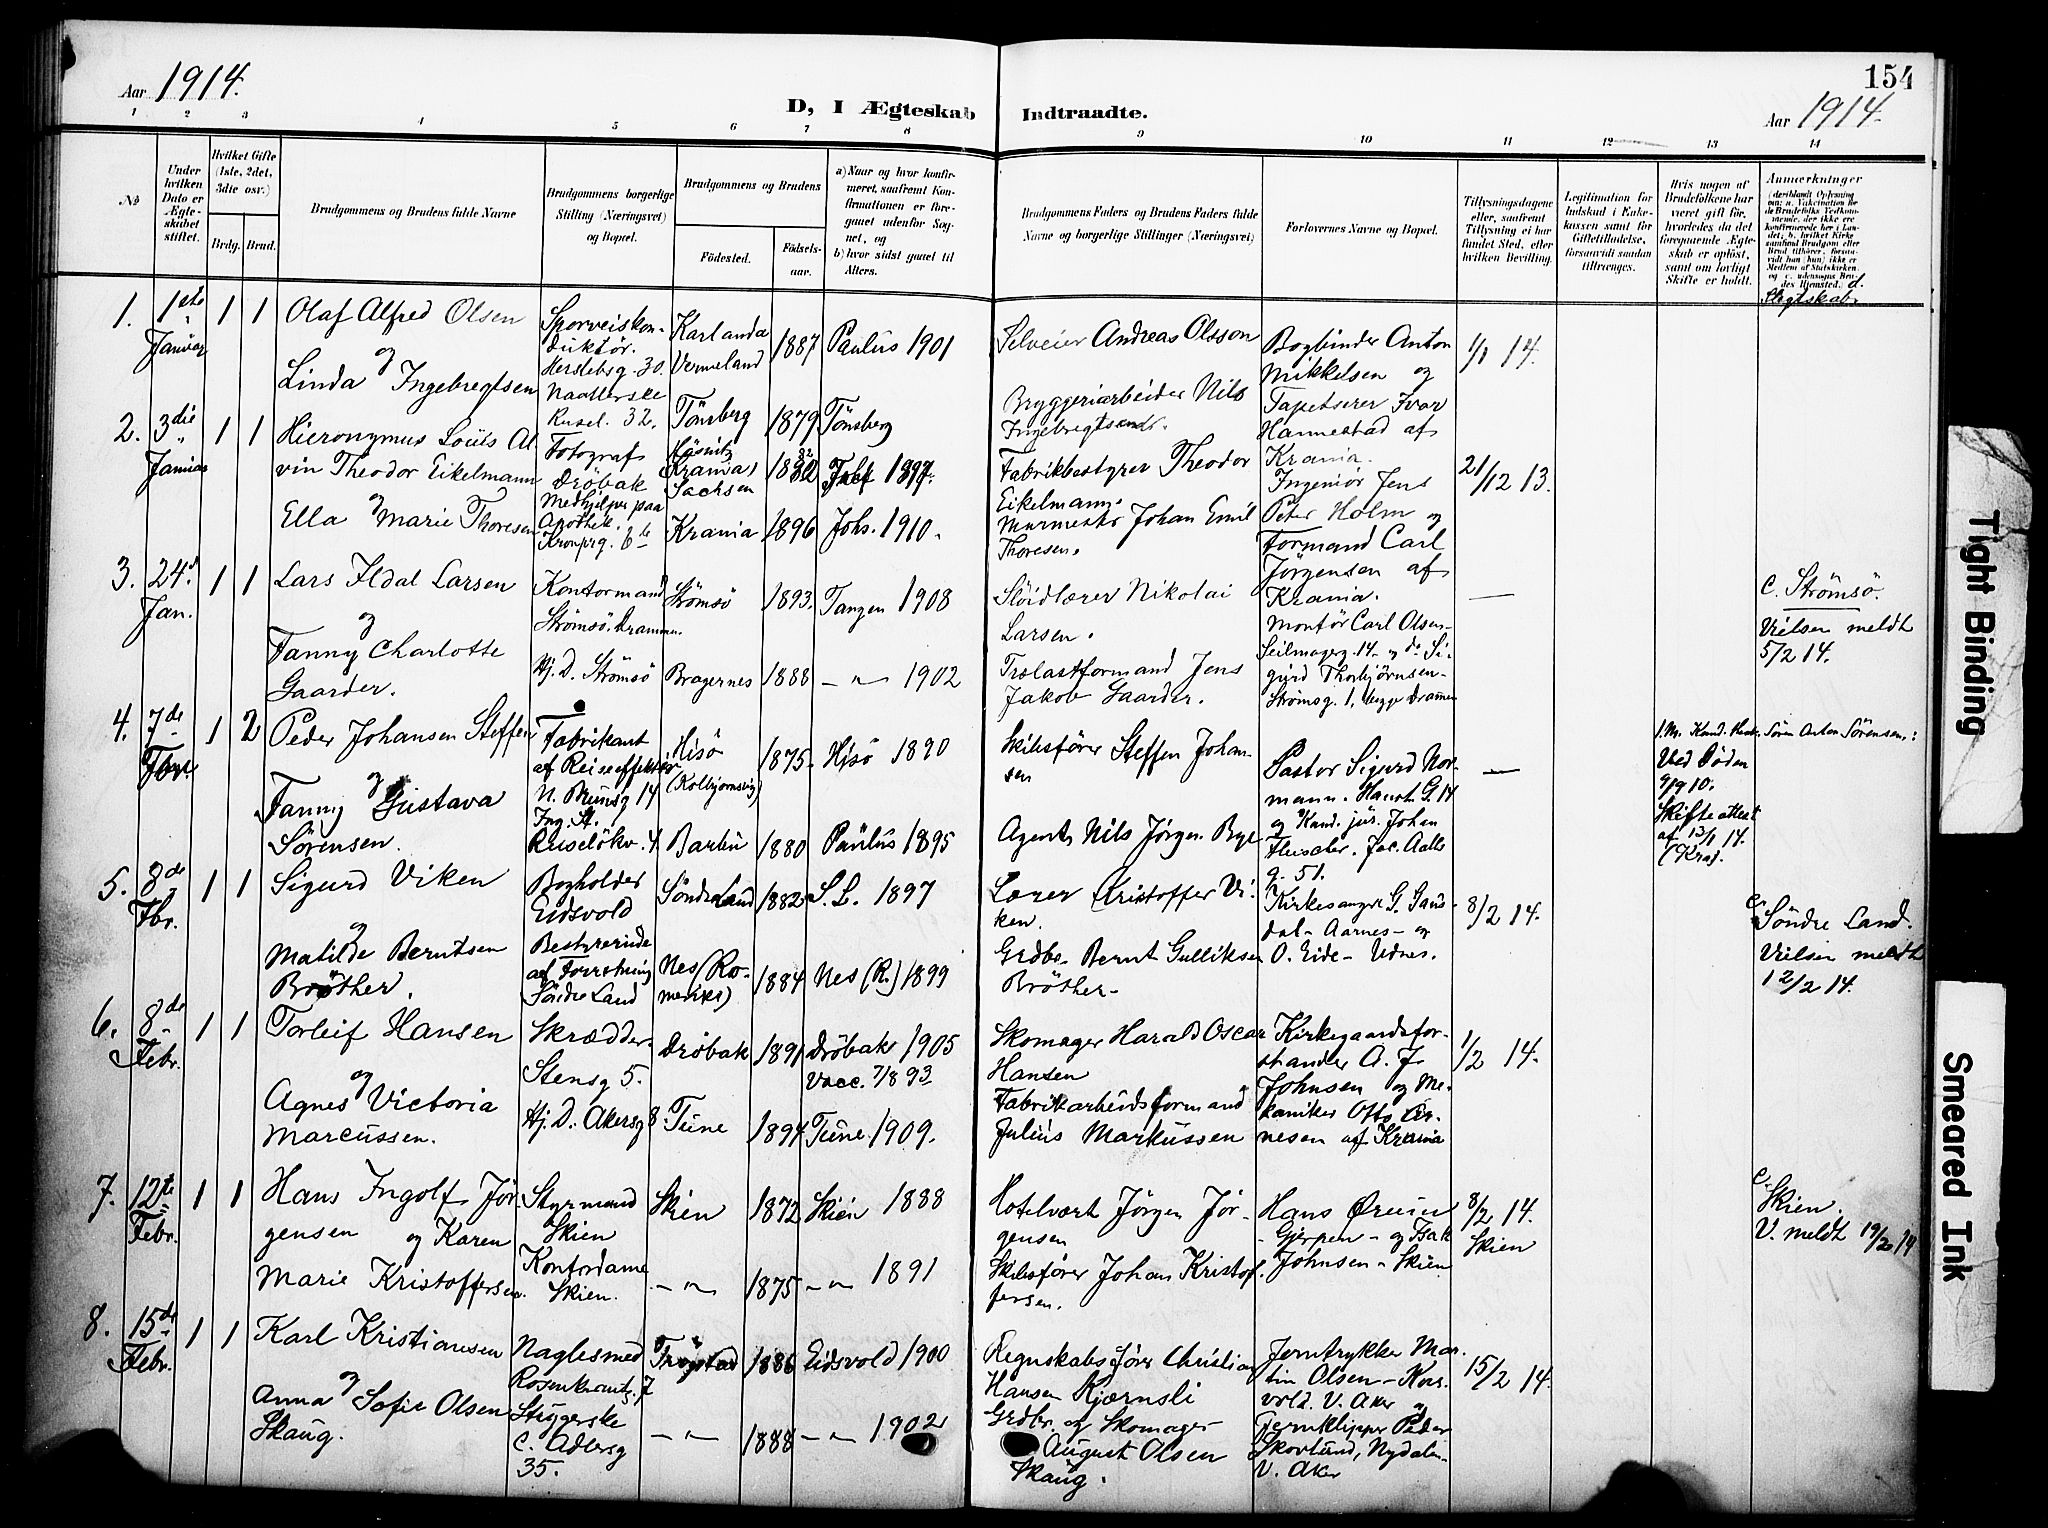 154
Aar 1914.
D, I Ægteskab Indtraadte.
Aar 1914.
1 2 3 4 5 6 7 8 9 10 11 12 13 14
No
Under hvilken Dato er Ægteskabet stiftet.
Hvilket Gifte (1ste, 2det, 3die osv.)
Brdg. Brud.
Brudgommens og Brudens fulde Navne
Brudgommens borgerlige Stilling (Næringsvei) og Bopæl.
Brudgommens og Brudens
Fødested.
Fødselsaar.
a) Naar og hvor konfirmeret, saafremt Konfirmationen er foregaaet udenfor Sognet, og
b) hvor sidst gaaet til Alters.
Brudgommens Faders og Brudens Faders fulde Navne og borgerlige Stillinger (Næringsvei)
Forlovernes Navne og Bopæl.
Tillysningsdagene eller, saafremt Tillysning ei har fundet Sted, efter hvilken Bevilling.
Legitimation for Indskud i Enkekassen samt for Giftetilladelse, forsaavidt saadan tiltrænges.
Hvis nogen af Brudefolkene har været gift før, hvorledes da det foregaaende Ægteskab er opløst, samt om lovligt Skifte er holdt.
Anmærkninger
d. Slegtskab.
1. 1ste Januar 1 1
Olaf Alfred Olsen
og
Linda Ingebregtsen
Sporveiskonduktør.
Herslebsg. 30.
Karlanda Vermeland 1887 Paulus 1901
Tönsberg 1879 Tönsberg
Selveier Andreas Olsson
Bryggeriarbeider Nils Ingebregtsen
Bogbinder Anton Mikkelsen og
Tapetserer Ivar Hannestad af Krania.
1/1 14.
2. 3die Januar 1 1
Hieronymus Louis Alvin Theodor Eikelmann
og
Ella Marie Thoresen
Fotograf
Dröbak
Medhjelper paa Apothek.
Kronprg. 6
Sachsen
Krania 1896 Johs. 1910.
Fabrikbestyrer Theodor Eikelmann
Murmester Johan Emil Thoresen.
Ingeniør Jens Peter Holm og
Formand Carl Jörgensen af Krania.
21/12 13.
3. 24d Jan. 1 1
Lars Ildal Larsen
og
Fanny Charlotte Gaarder.
Kontormand
Strömsö. Drammen.
Hj. D. Strömsö
Strömsö 1893. Tangen 1908
Bragernes 1888 — " — 1902
Slöidlærer Nikolai Larsen.
Trelastformand Jens Jakob Gaarder.
Montör Carl Olsen
Seilmagerg. 14 - og do Sigurd Thorbjörnsen -
Strömsg. 1, begge Drammen
—
C. Strömsö.
Vielsen meldt
5/2 14.
4. 7de Fbr. 1 2
Peder Johansen Steffen
og
Fanny Gustava Sörensen.
Fabrikant af Reiseeffekter
N. Munsg 14
Ruselökv. 4
Hisö (Kolbjornsvig) 1875 Hisö 1890
Barbu 1880 Paulus 1895
Skibsförer Steffen Johansen
Agent Nils Jörgen Bye
Pastor Sigurd Normann. Hausm. G. 14
og Kand. jur. Johan
g. 51.
—
Søren Anton Sörensen,:
Ved Döden 9/9 10.
Skifteattest af 13/1 14.
(Kra).
5. 8de Fbr. 1 1
Sigurd Viken
og
Matilde Berntsen Bröther.
Bogholder
Eidsvold
Bestyrerinde af Forretning
Söndre Land
Söndre Land 1882 S. L. 1897
Nes (Romerike) 1884 Nes (R.) 1899
Lærer Kristoffer Viken.
Grdbr. Bernt Gulliksen Bröther -
Kirkesanger G. Gausdal - Aarnes - og
O. Eide - Udnes.
8/2 14.
C. Söndre Land.
Vielsen meldt
12/2 14.
6. 8de Febr. 1 1
Torleif Hansen
og
Agnes Victoria Marcussen.
Skrædder
Stensg 5.
Hj. D. Akersg 8
Dröbak 1891 Dröbak 1905
Vacc. 7/8 93
Tune 1894 Tune 1909.
Skomager Harald Oscar Hansen
Fabrikarbeidsformand Julius Markussen
Kirkegaardsforstander A. J. Johnsen og Mekaniker Otto Arnesen af Krania
1/2 14.
7. 12te Febr. 1 1
Hans Ingolf Jörgensen og Karen Marie Kristoffersen.
Styrmand
Skien
Kontordame
Skien.
Skien 1872 Skien 1888
— " — 1875 — " — 1891
Hotelvært Jörgen Jörgensen
Skibsförer Johan Kristoffersen.
Hans Örum
- Gjerpen - og Isak Johnsen - Skien
8/2 14.
Skien
C. Skien.
V. meldt 19/2 14
8. 15de Febr. 1 1
Karl Kristiansen
og
Anna Sofie Olsen Skaug.
Naglesmed
Rosenkrantzg. 7
Styggerske
C. Adlersg 35.
Trögstad 1886 Eidsvold 1900
— " — 1888 — " — 1902
Regnskabsförer Christian Hansen Kjærnsli
Grdbr. og Skomager August Olsen Skaug.
Jerntrykker Martin Olsen - Korsvold. V. Aker og
Jernklipper Peder Skovlund, Nydalen
V. Aker
15/2 14.
Tight Binding
Smeared Ink